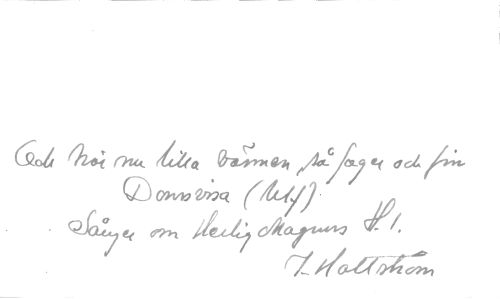 Och hör nu lilla vännen, så fager och fin
Dansvisa (Utf).
Sånger om Helig Magnus H. 1.
J. Hallström